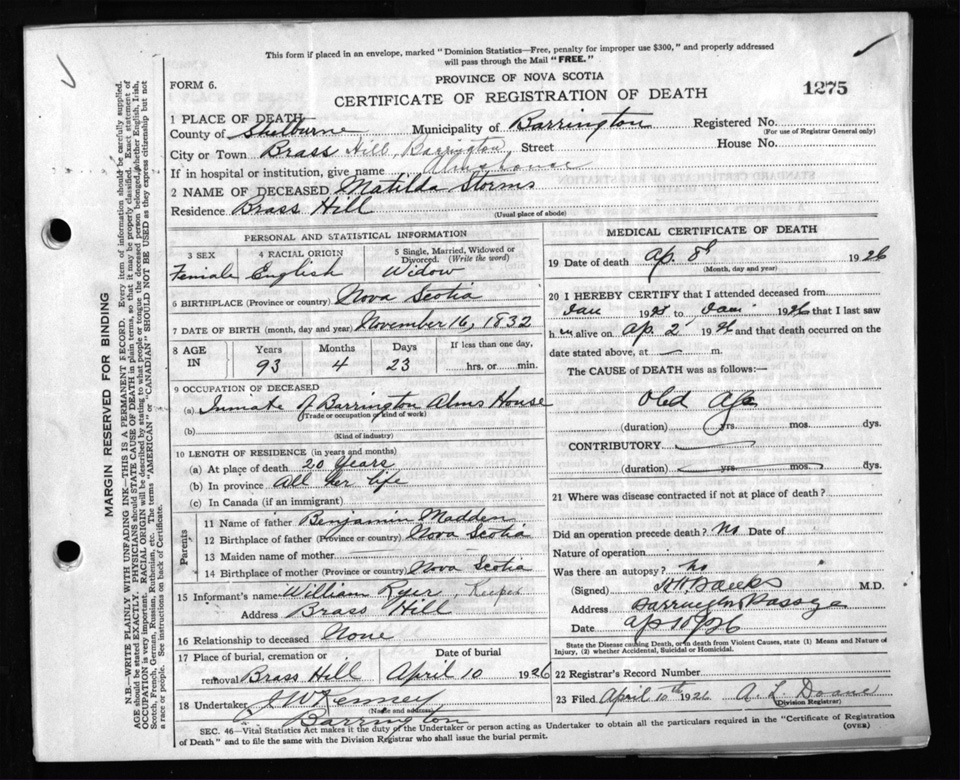 This form if placed in an envelope, marked "Dominion Statistics—Free, penalty for improper use $300," and properly addressed
will pass through the Mail "FREE."
PROVINCE OF NOVA SCOTIA
FORM 6.
CERTIFICATE OF REGISTRATION OF DEATH
1275
1 PLACE OF DEATH
County of Shelburne Municipality of Barrington Registered No.
(For use of Registrar General only)
City or Town Brass Hill, Barrington, Street House No.
If in hospital or institution, give name Almshouse
2 NAME OF DECEASED Matilda Storms
Residence Brass Hill
(Usual place of abode)
PERSONAL AND STATISTICAL INFORMATION
3 SEX 4 RACIAL ORIGIN 5 Single, Married, Widowed or Divorced. (Write the word)
Female English Widow
6 BIRTHPLACE (Province or country) Nova Scotia
7 DATE OF BIRTH (month, day and year) November 16, 1832
8 AGE IN Years Months Days If less than one day,
93 4 23 hrs. or min.
9 OCCUPATION OF DECEASED
(a) Inmate of Barrington Alms House
(Trade or occupation or kind of work)
(b)
(Kind of industry)
10 LENGTH OF RESIDENCE (in years and months)
(a) At place of death 20 Years
(b) In province all her life
(c) In Canada (if an immigrant)
Parents
11 Name of father Benjamin Madden
12 Birthplace of father (Province or country) Nova Scotia
13 Maiden name of mother
14 Birthplace of mother (Province or country) Nova Scotia
15 Informant's name William Ryer, Keeper
Address Brass Hill
16 Relationship to deceased None
17 Place of burial, cremation or removal Date of burial
Brass Hill April 10 1926
18 Undertaker J W Kenney
(Name and address)
Barrington
MEDICAL CERTIFICATE OF DEATH
19 Date of death Ap. 8th 1926
(Month, day and year)
20 I HEREBY CERTIFY that I attended deceased from
Jan 1925 to Jan 1926 that I last saw
h er alive on ap 2 1926 and that death occurred on the
date stated above, at — m.
The CAUSE of DEATH was as follows:—
Old Age
(duration) yrs. mos. dys.
CONTRIBUTORY
(duration) yrs. mos. dys.
21 Where was disease contracted if not at place of death?
Did an operation precede death? No Date of
Nature of operation
Was there an autopsy? No
(Signed) M.D.
Address Barrington Passage
Date ap 10/26
State the Disease causing Death, or in death from Violent Causes, state (1) Means and Nature of
Injury, (2) whether Accidental, Suicidal or Homicidal.
22 Registrar's Record Number
23 Filed April 10th 1926 A. L. Doane
(Division Registrar)
SEC. 46—Vital Statistics Act makes it the duty of the Undertaker or person acting as Undertaker to obtain all the particulars required in the "Certificate of Registration
of Death" and to file the same with the Division Registrar who shall issue the burial permit.
(OVER)
MARGIN RESERVED FOR BINDING
N.B.—WRITE PLAINLY WITH UNFADING INK—THIS IS A PERMANENT RECORD. Every item of information should be carefully supplied.
AGE should be stated EXACTLY. PHYSICIANS should STATE CAUSE OF DEATH in plain terms, so that it may be properly classified. Exact statement of
OCCUPATION is very important. RACIAL ORIGIN will be described by stating to what people or tongue the deceased person belonged, whether English, Irish,
Scotch, French, German, Russian, Ruthenian, etc. The terms "AMERICAN" or "CANADIAN" SHOULD NOT BE USED as they express citizenship but not
a race or people. See instructions on back of Certificate.